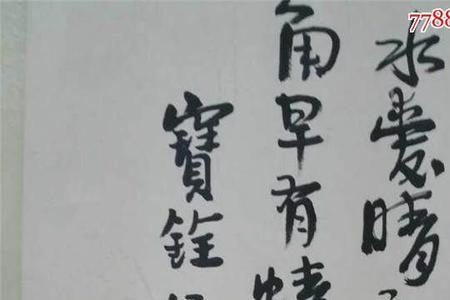 7788
水愛晴
角早有蜻
寶銓